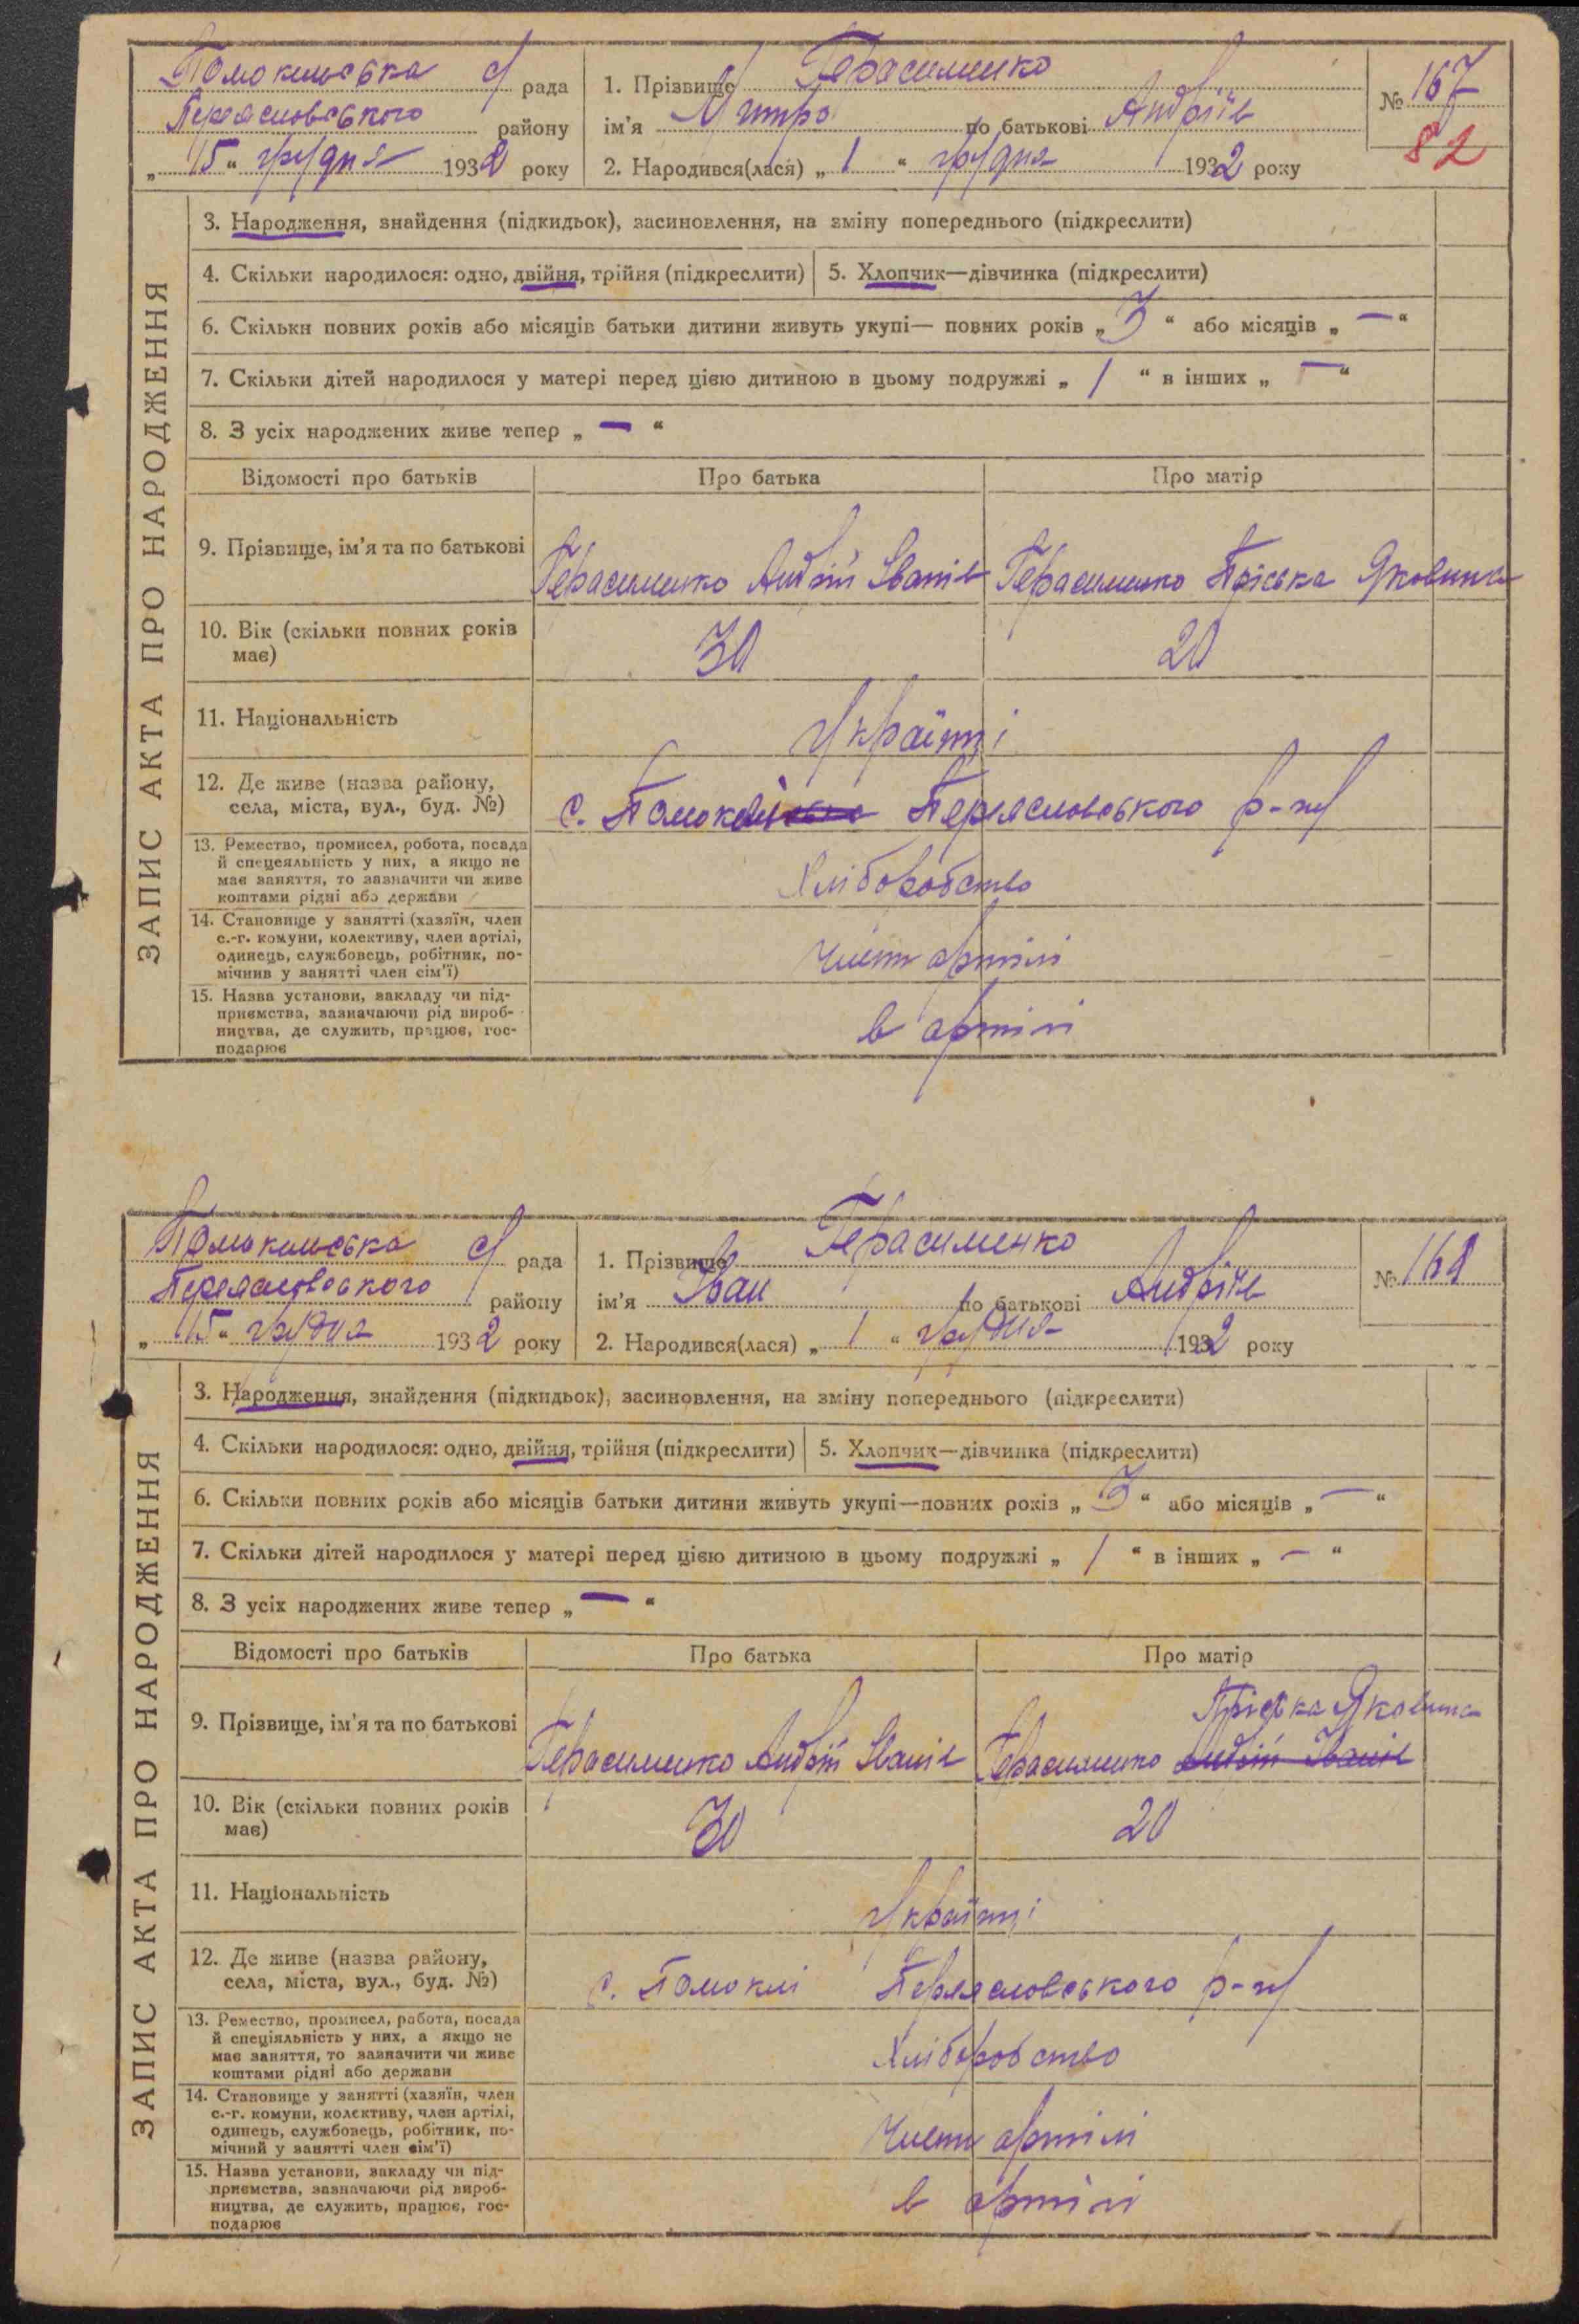 Помокельська с/рада 1. Прізвище Герасименко № 167
Переяславського району ім'я Митро по батькові Андрійв 82
„15“ грудня 1932 року 2. Народився(лася) „1“ грудня 1932 року
ЗАПИС АКТА ПРО НАРОДЖЕННЯ
3. Народження, знайдення (підкидьок), засиновлення, на зміну попереднього (підкреслити)
4. Скільки народилося: одно, двійня, трійня (підкреслити) 5. Хлопчик—дівчинка (підкреслити)
6. Скільки повних років або місяців батьки дитини живуть укупі— повних років „3“ або місяців „—“
7. Скільки дітей народилося у матері перед цією дитиною в цьому подружжі „1“ в інших „—“
8. З усіх народжених живе тепер „—“
Відомості про батьків Про батька Про матір
9. Прізвище, ім'я та по батькові Герасименко Андрій Іванів Герасименко Пріська Яковина
10. Вік (скільки повних років
має) 30 20
11. Національність Українці
12. Де живе (назва району,
села, міста, вул., буд. №) с. Помоклі Переяславського р-ну
13. Ремество, промисел, робота, посада
й спецеяльність у них, а якщо не
має заняття, то зазначити чи живе
коштами рідні або держави Хліборобство
14. Становище у занятті (хазяїн, член
с.-г. комуни, колективу, член артілі,
одинець, службовець, робітник, по-
мічнив у занятті член сім'ї) Члени артілі
15. Назва установи, закладу чи під-
приємства, зазначаючи рід вироб-
ництва, де служить, працює, гос-
подарює в артілі
Помокельська с/рада 1. Прізвище Герасименко № 168
Переяславського району ім'я Іван по батькові Андрійв
„15“ грудня 1932 року 2. Народився(лася) „1“ грудня 1932 року
ЗАПИС АКТА ПРО НАРОДЖЕННЯ
3. Народження, знайдення (підкидьок), засиновлення, на зміну попереднього (підкреслити)
4. Скільки народилося: одно, двійня, трійня (підкреслити) 5. Хлопчик—дівчинка (підкреслити)
6. Скільки повних років або місяців батьки дитини живуть укупі—повних років „3“ або місяців „—“
7. Скільки дітей народилося у матері перед цією дитиною в цьому подружжі „1“ в інших „—“
8. З усіх народжених живе тепер „—“
Відомості про батьків Про батька Про матір
Пріська Яковина
9. Прізвище, ім'я та по батькові Герасименко Андрій Іванів Герасименко Андрій Іванів
10. Вік (скільки повних років
має) 30 20
11. Національність Українці
12. Де живе (назва району,
села, міста, вул., буд. №) с. Помоклі Переяславського р-ну
13. Ремество, промисел, робота, посада
й спеціяльність у них, а якщо не
має заняття, то зазначити чи живе
коштами рідні або держави Хліборобство
14. Становище у занятті (хазяїн, член
с.-г. комуни, колективу, член артілі,
одинець, службовець, робітник, по-
мічний у занятті член сім'ї) Члени артілі
15. Назва установи, закладу чи під-
приємства, зазначаючи рід вироб-
ництва, де служить, працює, гос-
подарює в артілі